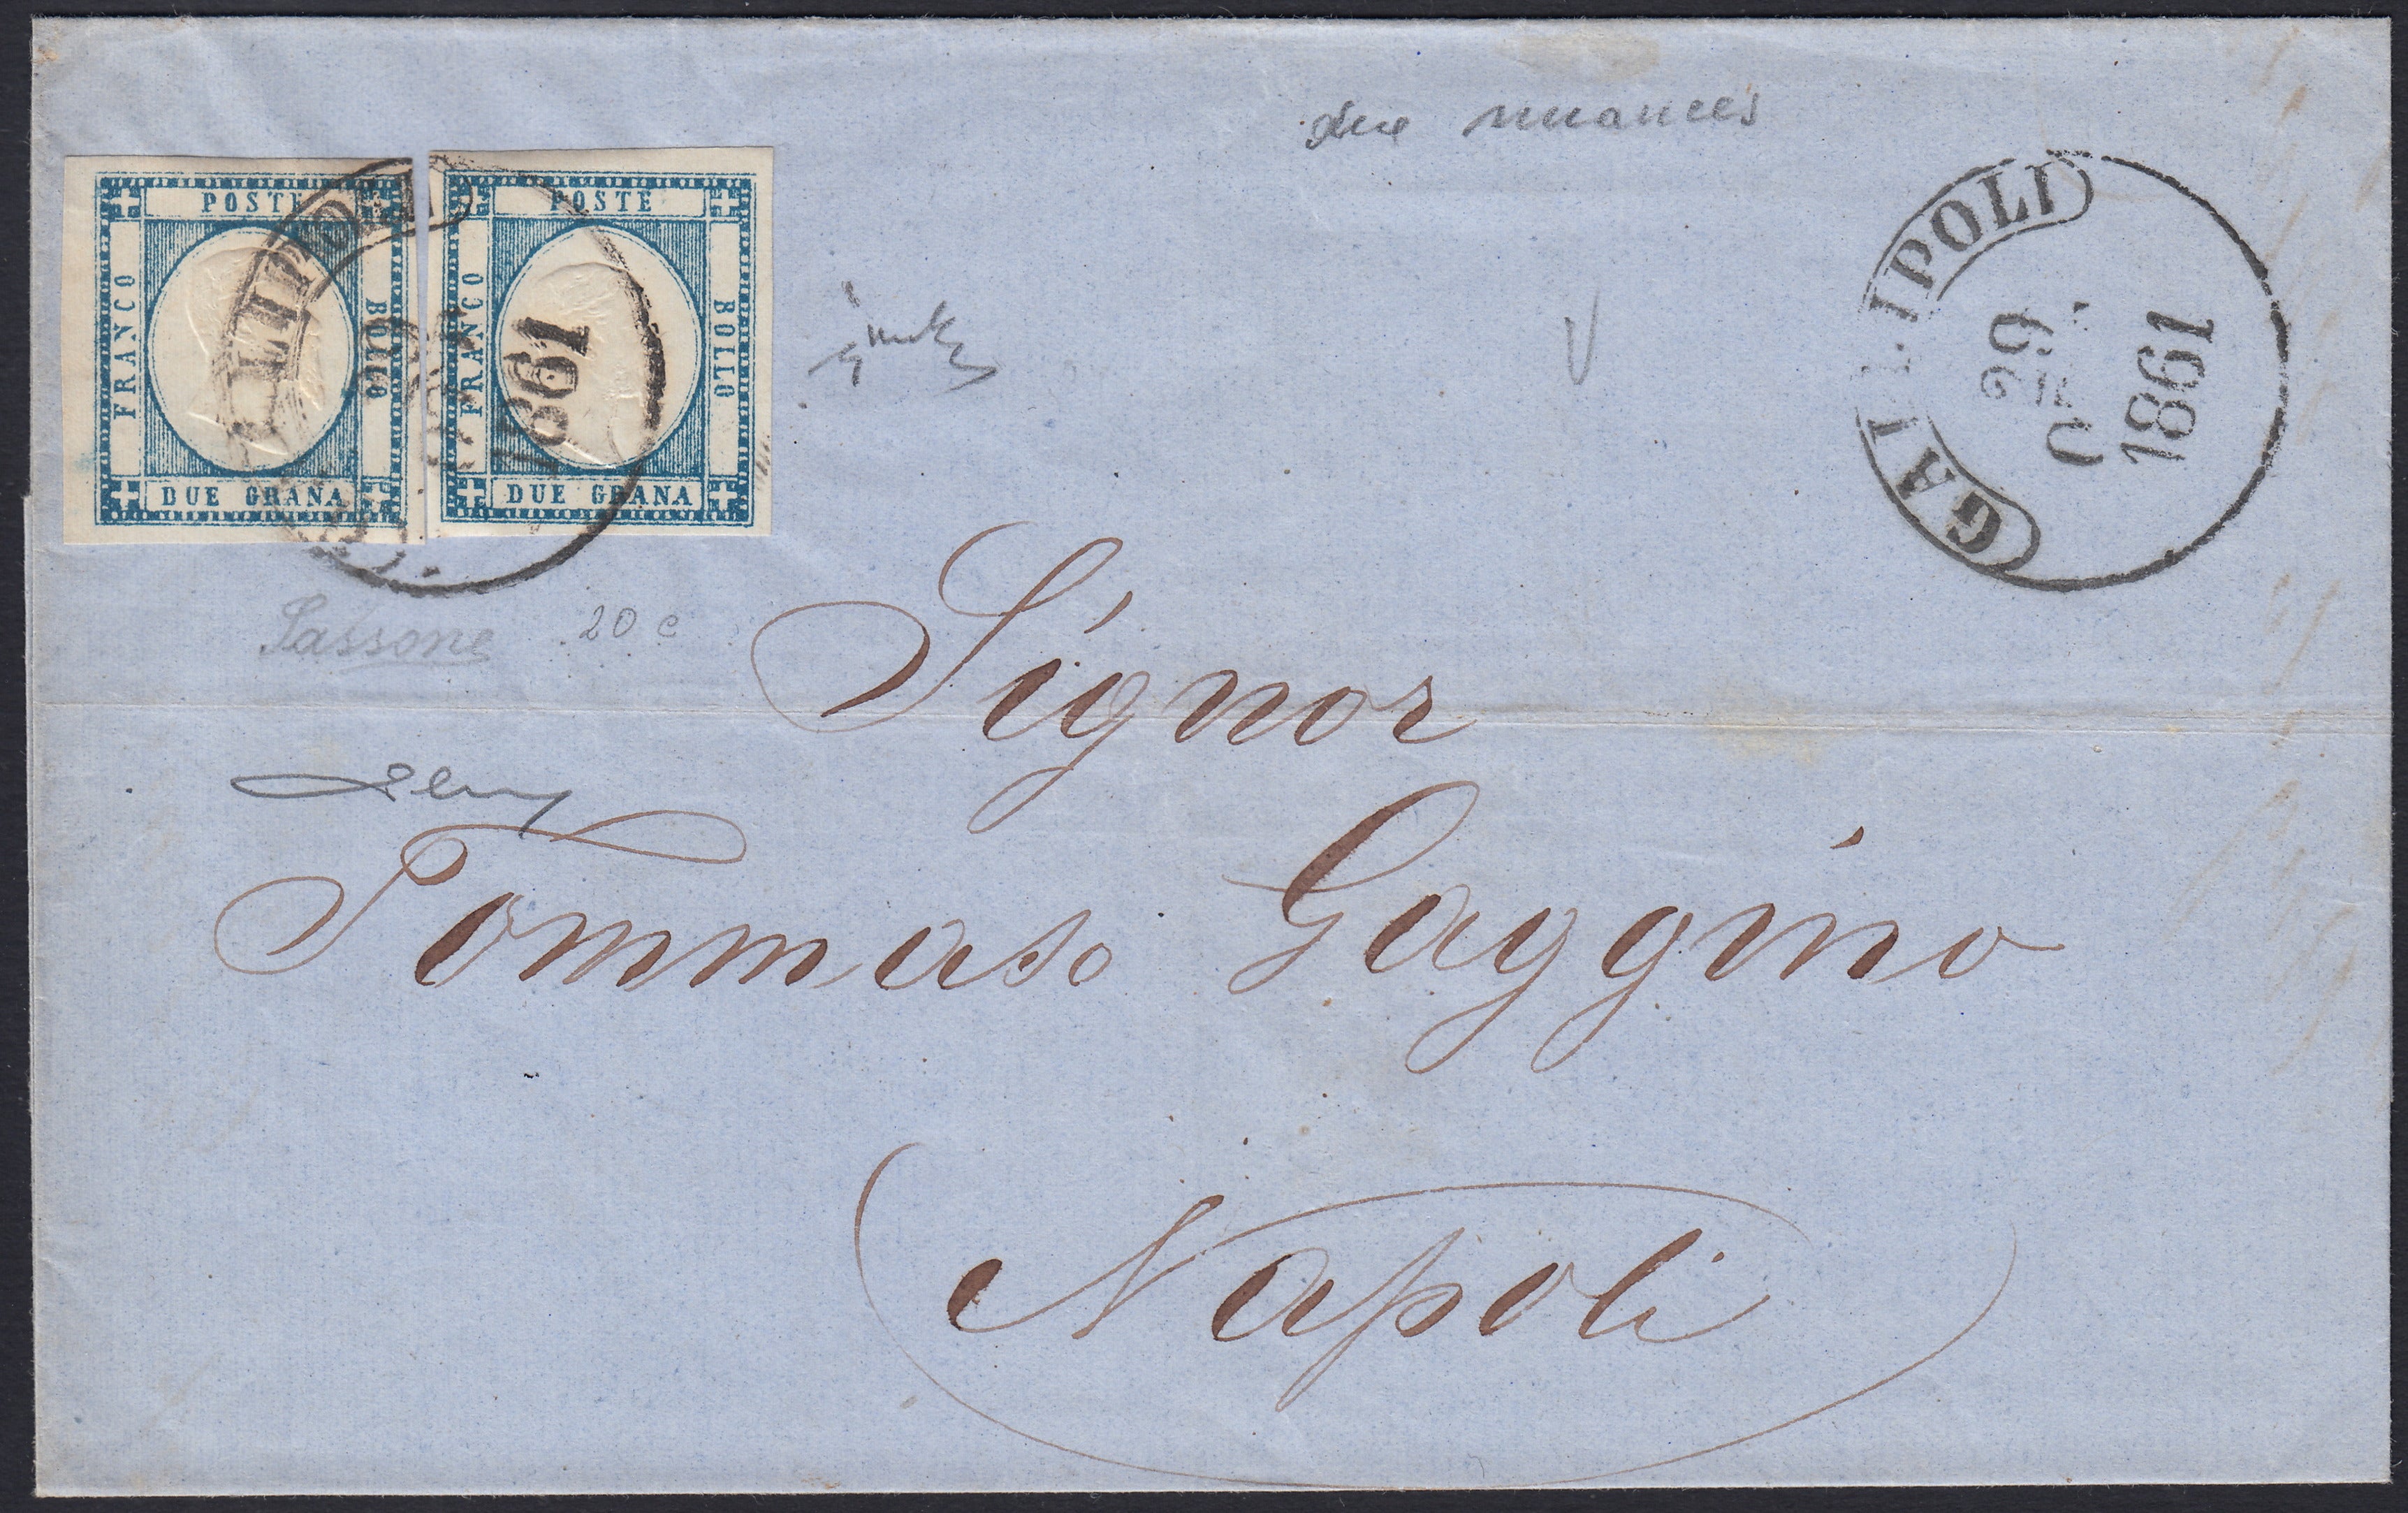 due nuances
POSTE
FRANCO
BOLLO
DUE GRANA
POSTE
FRANCO
BOLLO
DUE GRANA
1861
GALLIPOLI
29
1861
Sassone 20 c
Signor
Tommaso Gaggino
Napoli